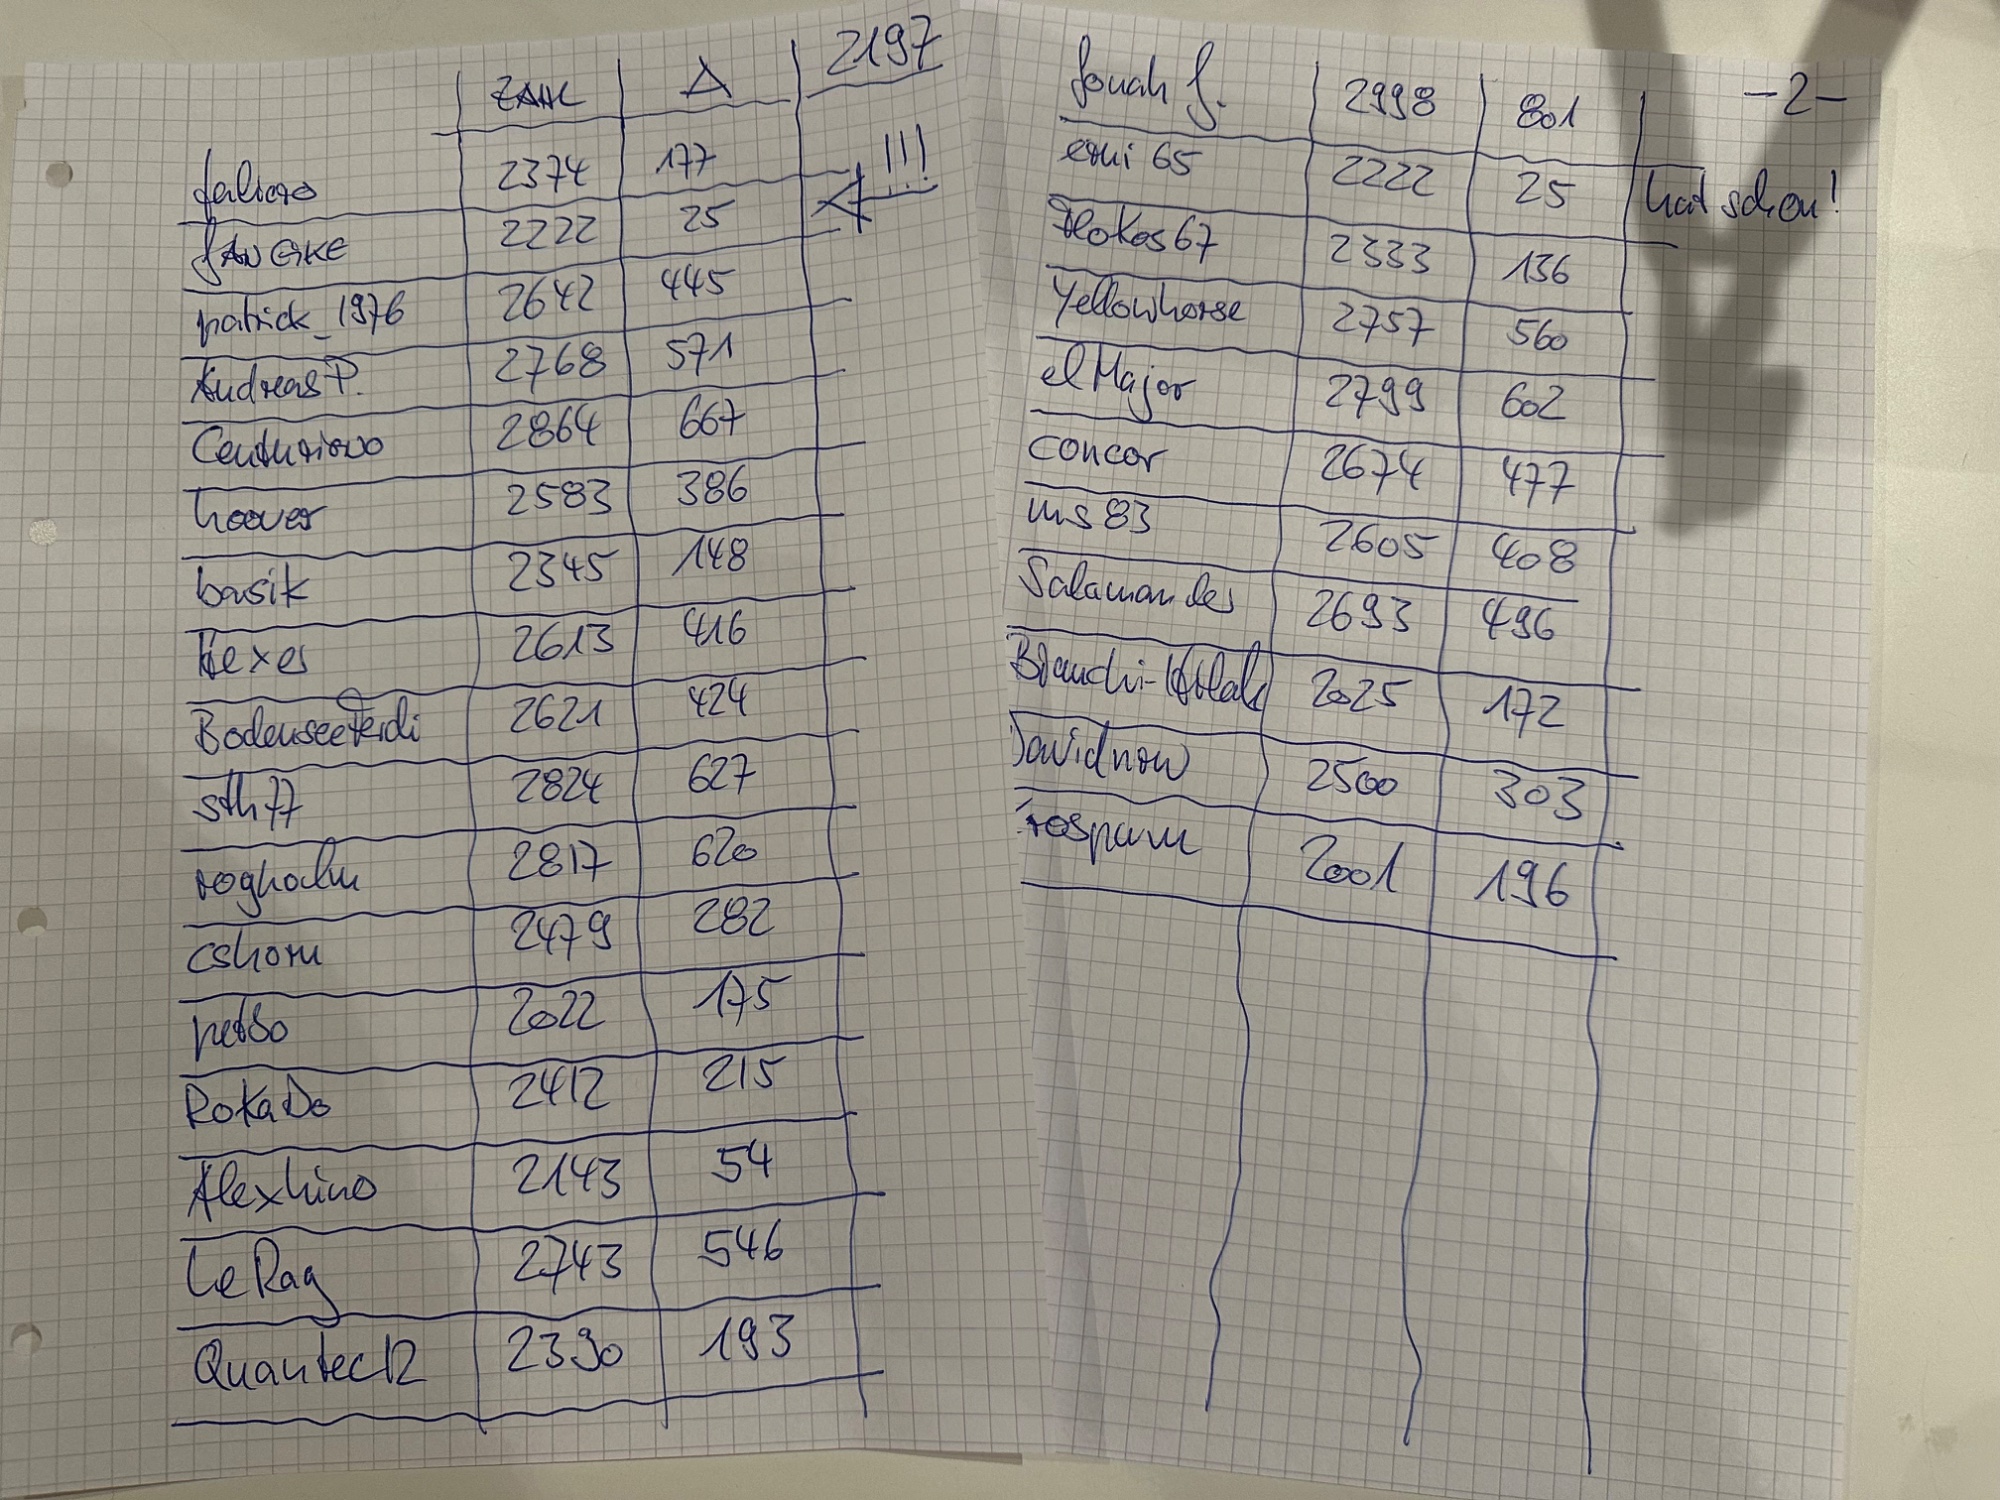 ZAHL Δ 2197
falicro 2374 177
JANGKE 2222 25 !!!
patrick_1976 2642 445
Andreas P. 2768 571
Centuriono 2864 667
hoover 2583 386
basik 2345 148
Hexer 2613 416
BodenseeFerdi 2621 424
sth77 2824 627
roghalm 2817 620
cshorn 2479 282
petso 2022 175
RoKaDo 2412 215
Alexhino 2143 54
Le Rag 2743 546
Quantec12 2390 193
-2-
Jonah J. 2998 801
erni 65 2222 25 hat schon!
2333 136
Yellowhorse 2757 560
el Major 2799 602
concor 2674 477
ms 83 2605 408
Salamander 2693 496
2025 172
Davidnow 2500 303
2001 196